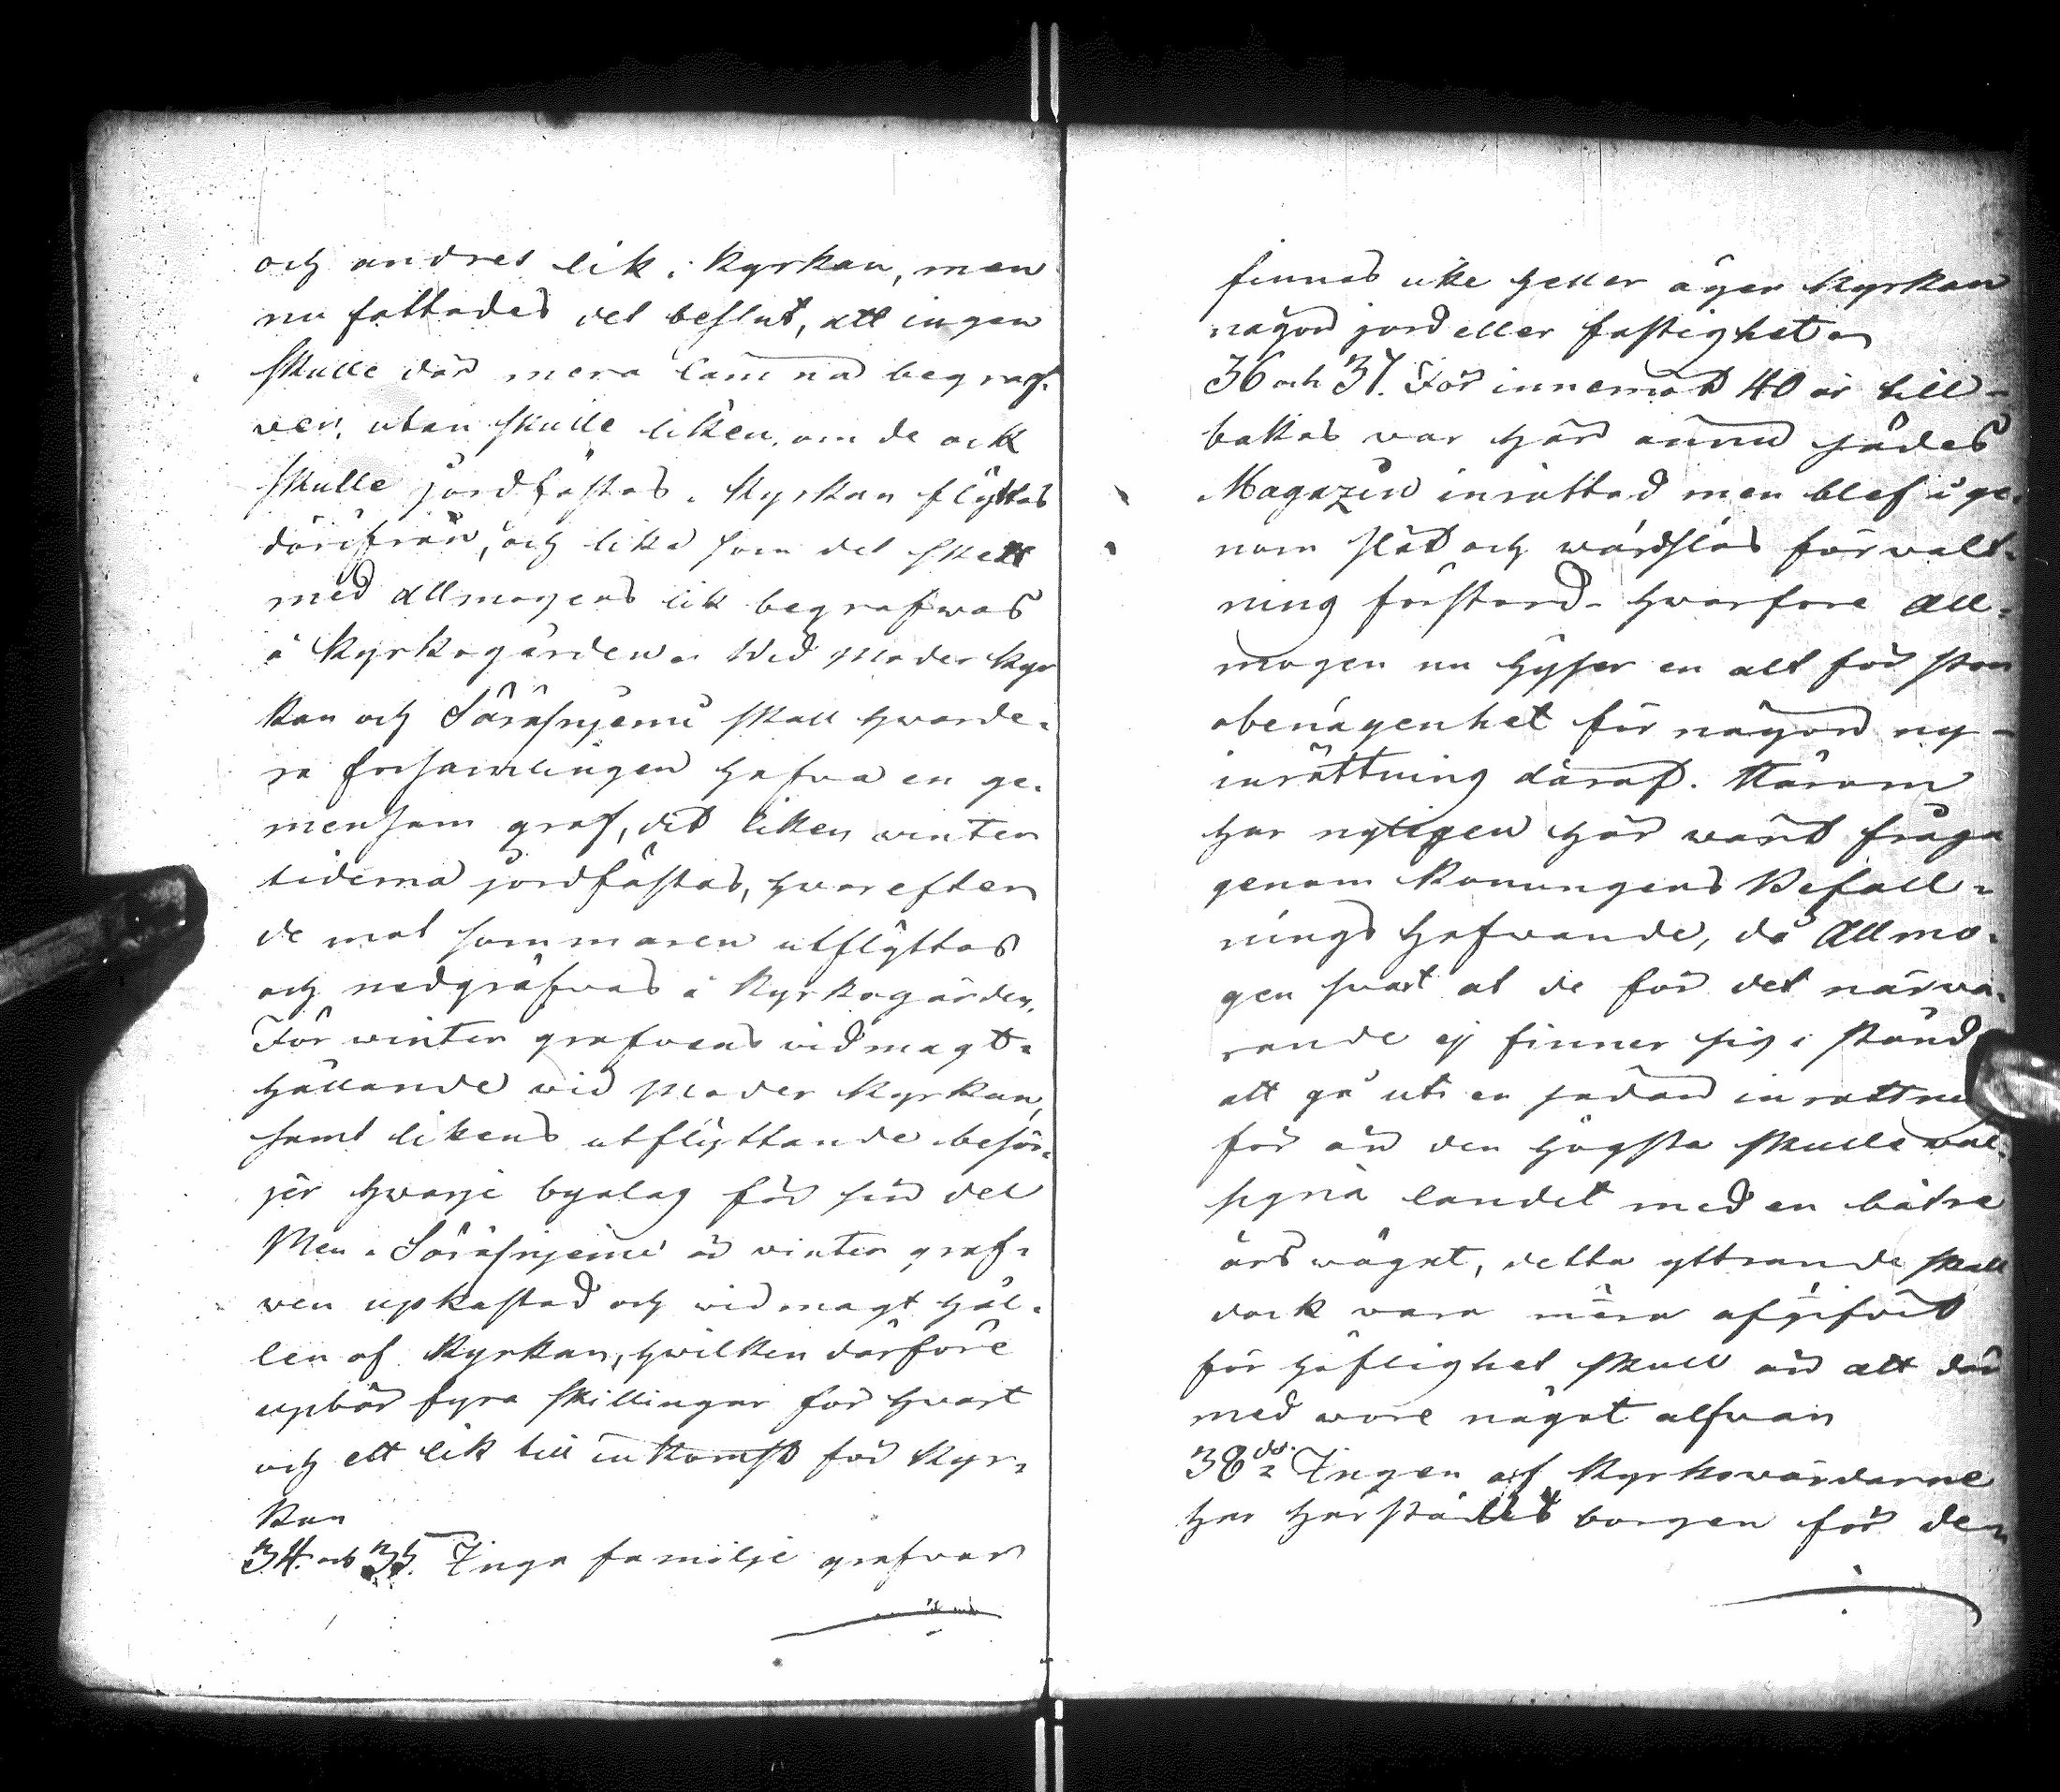 och andres lik i Kyrkan, men
nu fattades det beslut, att ingen
skulle där mera lämnas begraf-
ven, utan skulle liken, om de ock
skulle jordfästas i Kyrkan flyttas
därifrån, och lika som det skett
med allmogens lik begrafwas
å Kyrkogården. Wid Moder Kyr
kan och Söråsnjemi skall hwarde-
ra församlingen hafwa en ge-
mensam graf, dit liken winter
tiderna jordfästas, hwarefter
de mot sommaren utflyttas
och nedgräfwas å Kyrkogården.
För winter grafvens vidmagt-
hållande wid Moder Kyrkan,
samt likens utflyttande besör-
jer hwarje byalag för sin del
Men i Söråsnjemi är winter graf-
wen upkastad och wid magt hål-
len af Kyrkan, hwilken därföre
upbär fyra skillingar för hwart
och ett lik till inkomst för Kyr-
kan
34. och 35. Inga familje grafvar
finnas icke heller äger Kyrkan
någon jord eller fastighet
36 och 37. För innemot 40 år till-
bakas war här ännu sädes
Magazin inrättad men blef ige-
nom slät och wårdslös förwalt-
ning förstörd hwarföre All-
mogen nu hyser en alt för stor
obenägenhet för någon ny-
inrättning däraf. Härom
har nyligen här warit fråga
genom Konungens Befall-
nings Hafwande, då Allmo-
gen swart at de för det närwa-
rande ej finner sig i stånd
att gå uti en sådan inrättni
för än den högsta skulle wäl-
signa landet med en bätre
års wäxt, detta yttrande skall
dock wara mera afgifwit
för höflighet skull än att där
med wore något alfwar
38de. Ingen af Kyrkowärdarne
har härstädes borgen för den